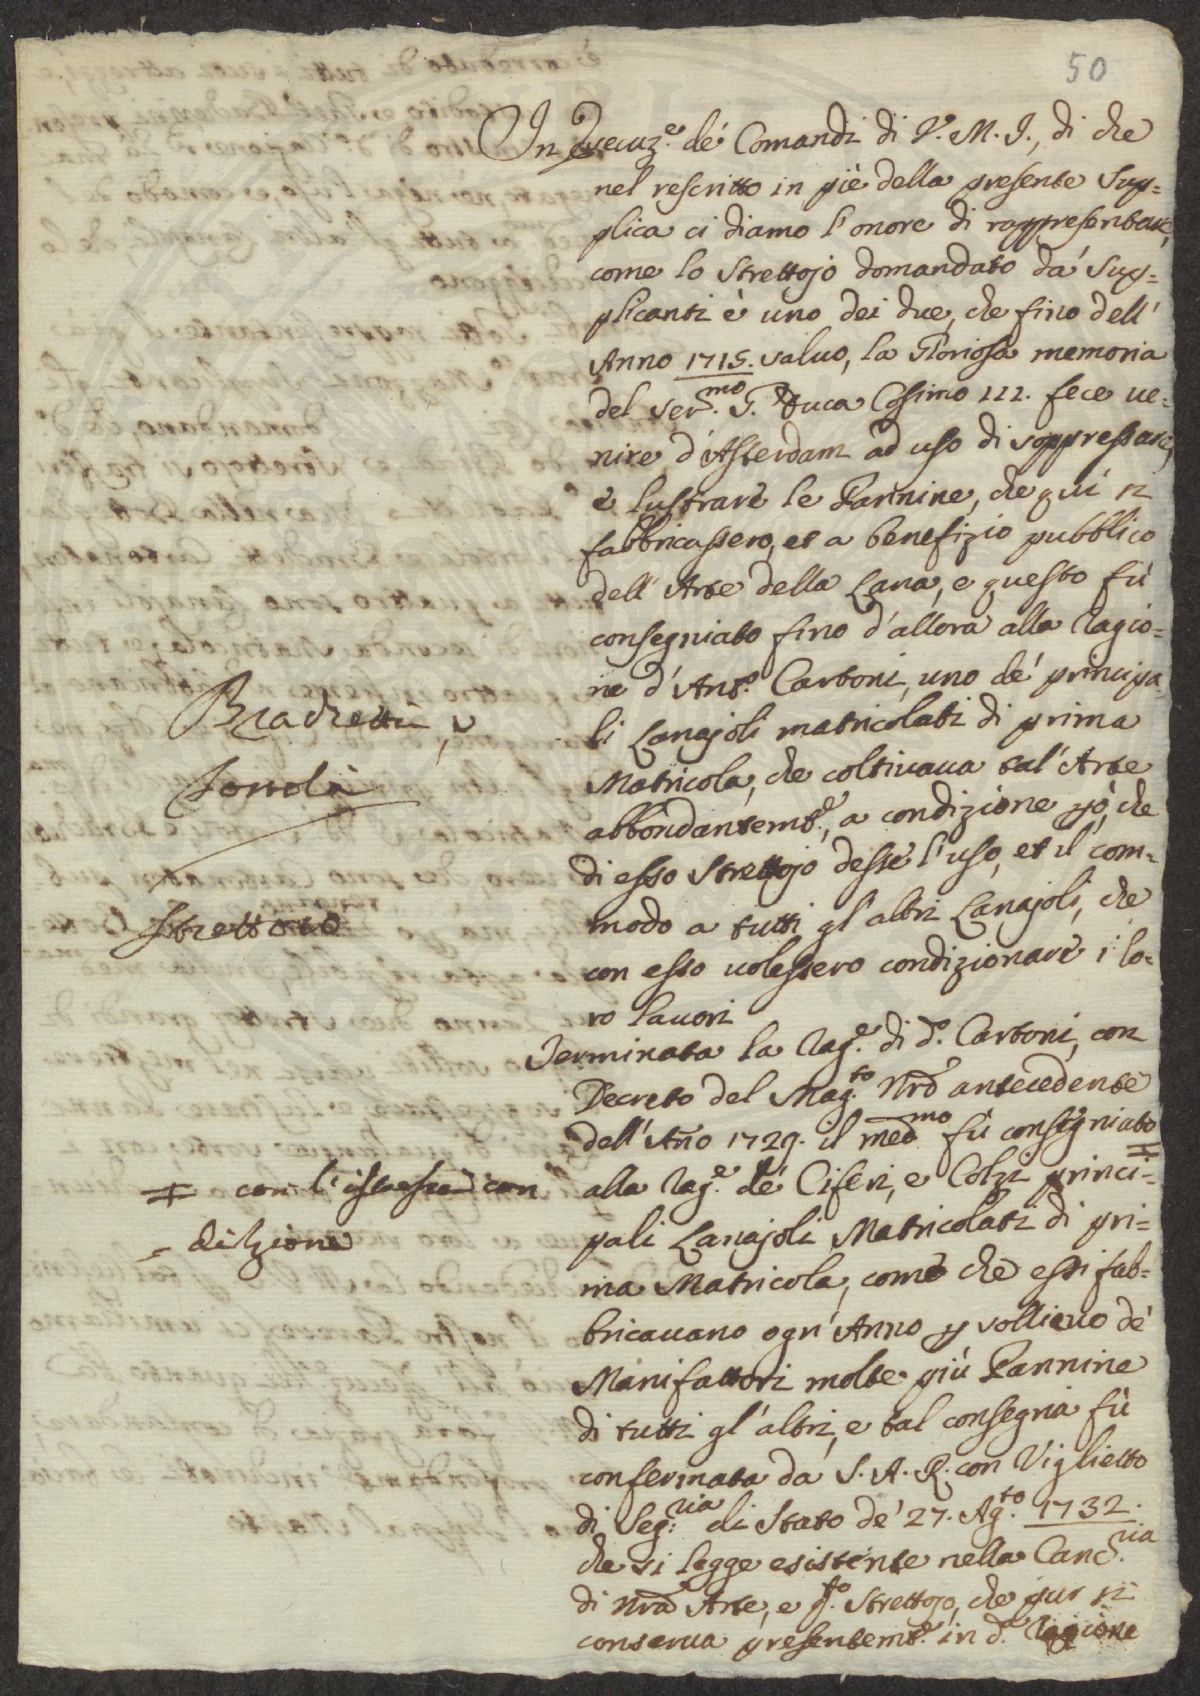 50
In Esecuz.e de' Comandi di V. M. I., di che
nel rescritto in piè della presente Sup=
plica ci diamo l'onore di rappresentare,
come lo Strettojo domandato da' Sup=
plicanti è uno dei due, che fino dell'
Anno 1715. salvo, la Gloriosa memoria
del Ser.mo G. Duca Cosimo III. fece ve=
nire d'Asterdam ad uso di soppressare,
e lustrare le Pannine, che qui si
fabbricassero, et a benefizio pubblico
dell'Arte della Lana, e questo fù
consegniato fino d'allora alla Ragio=
ne d'Ant.o Carboni, uno de' principa=
li Lanajoli matricolati di prima
Matricola, che coltivava tal'Arte
abbondantemt.e, a condizione pò, che
di esso Strettojo desse l'uso, et il com=
modo a tutti gl'altri Lanajoli, che
con esso volessero condizionare i lo=
ro lavori
Terminata la Rag.e di d.o Carboni, con
Decreto del Mag.to Nrõ antecedente
dell'Año 1729. il med.mo fù consegniato #
alla Rag.e de' Ciferi, e Colzi princi=
pali Lanajoli Matricolati di pri=
ma Matricola, come che essi fab=
bricavano ogn'Anno p sollievo de'
Manifattori molte più Pannine
di tutti gl'altri, e tal consegnia fù
confermata da S. A. R. con Viglietto
di Seg.ria di Stato de' 27. Ag.to 1732.
che si legge esistente nella Canc.ria
di Nrã Arte, e q.to Strettojo, che pur si
conserva presentemt.e in d.a Ragione
Strettoio
# con l'istessa con
= dizione